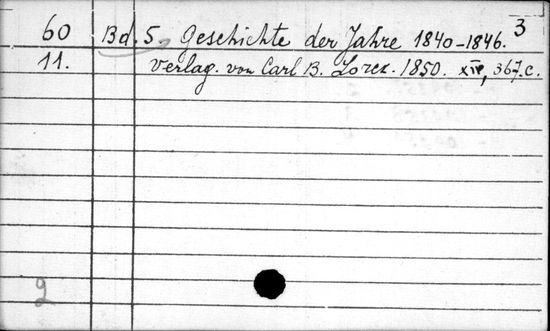 3
60 Bd. 5. Geschichte der Jahre 1840-1846.
11. Verlag. von Carl B. Lorck. 1850. XIV, 367.c.
2